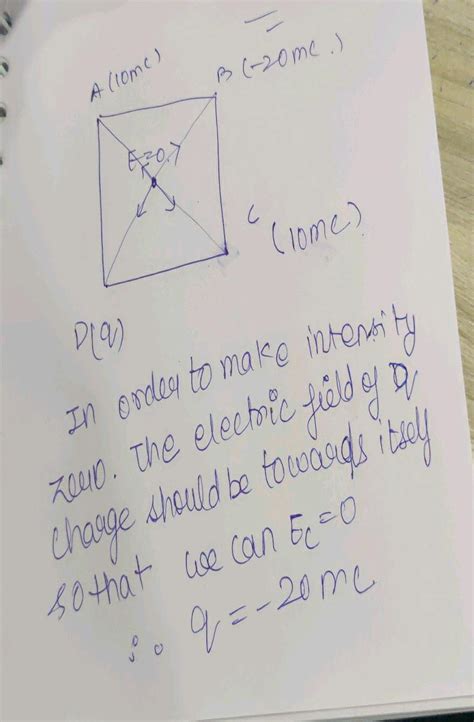 A (10mc)
B (-20mc.)
E=0.
C (10mc)
D(q)
In order to make intensity
zero. The electric field of q
charge should be towards itself
so that we can Ec=0
∴ q = -20mc